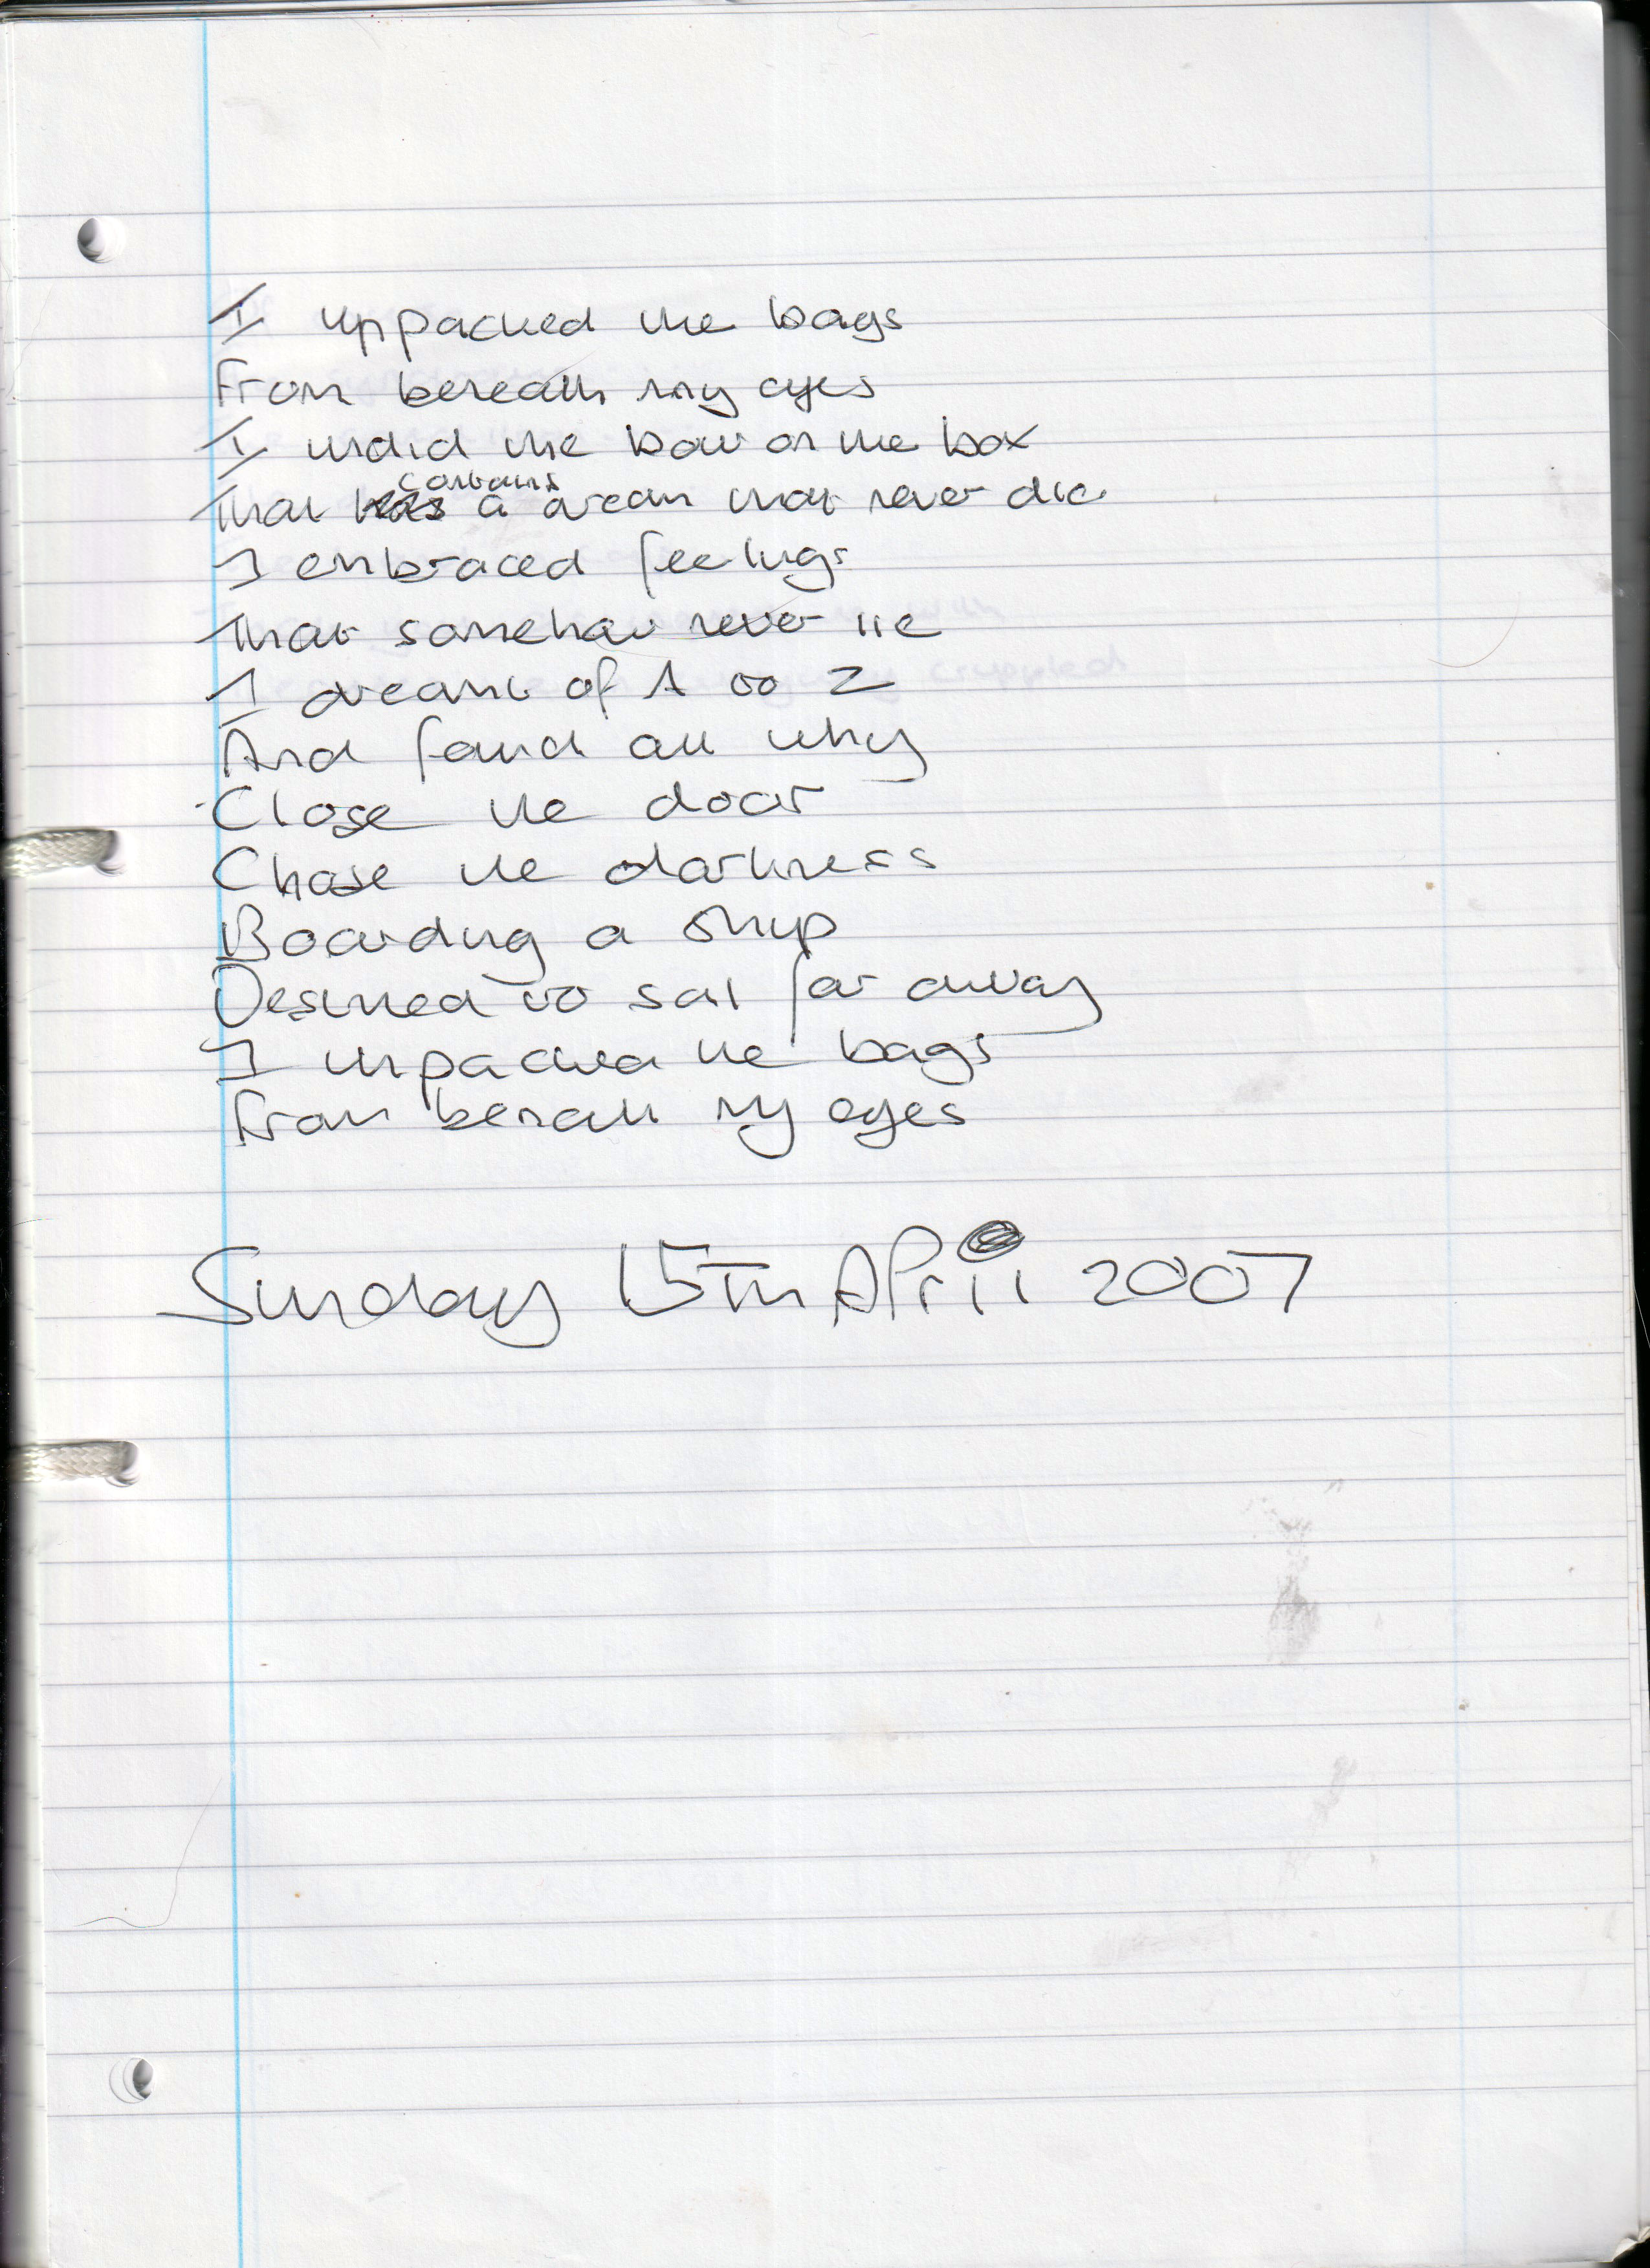 I unpacked the bags
From beneath my eyes
I undid the bow on the box
That contains a dream that never die
I embraced feelings
That somehow never lie
I dreamt of A to Z
And found out why
Close the door
Chase the darkness
Boarding a ship
Destined to sail far away
I unpacked the bags
From beneath my eyes
Sunday 15th April 2007